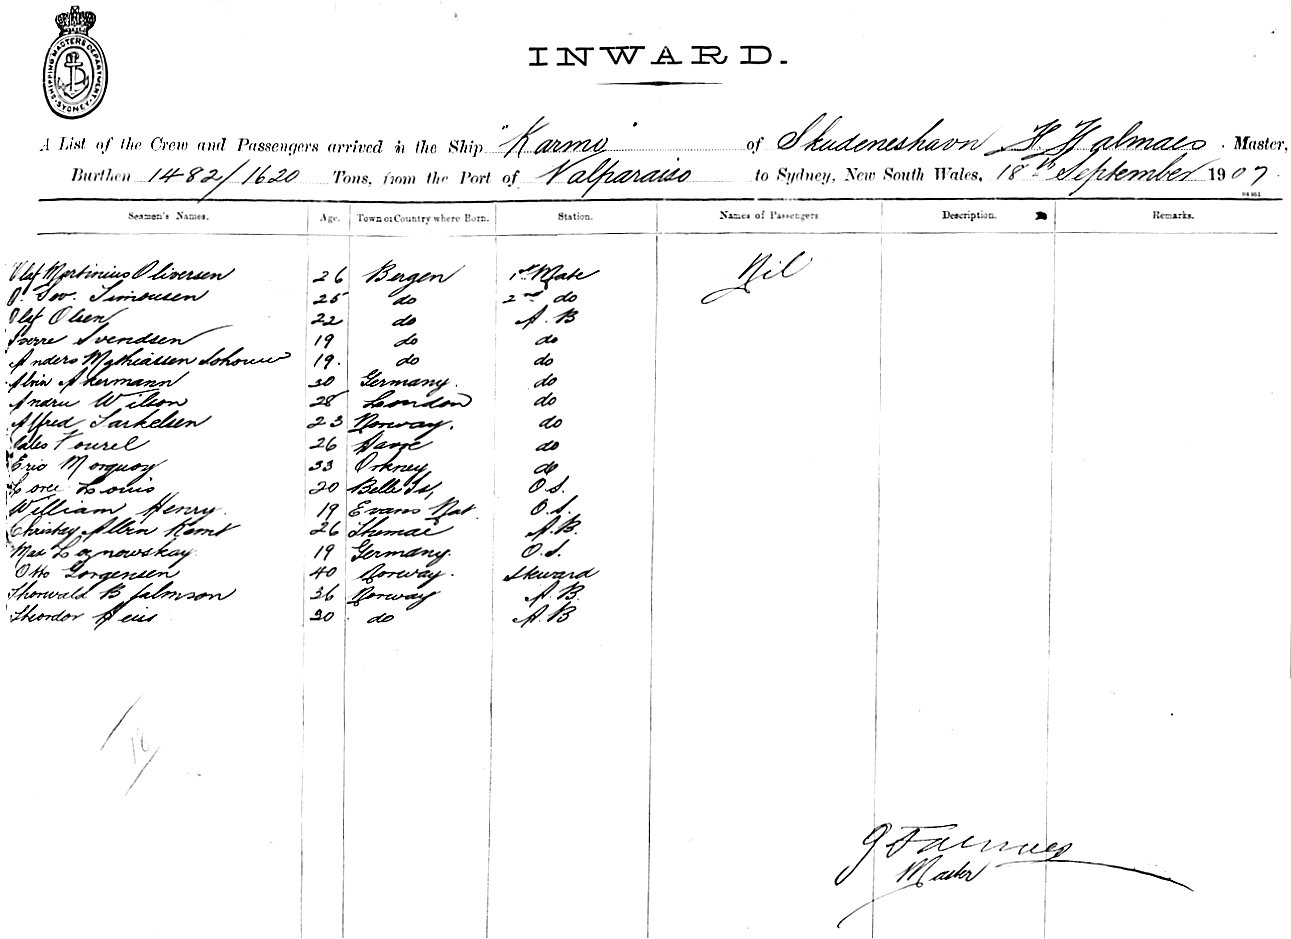 SHIPPING MASTERS DEPARTMENT SYDNEY
INWARD.
A List of the Crew and Passengers arrived in the Ship "Karmo" of Skudeneshavn Master,
Burthen 1482/1620 Tons, from the Port of Valparaiso to Sydney, New South Wales, 18th September 1907.
Seamen's Names. Age. Town or Country where Born. Station. Names of Passengers Description. Remarks.
Olaf Martinius Oliversen 26 Bergen 1st Mate Nil
O. Sev. Simonsen 25 do 2nd do
Olaf Olsen 22 do A. B
Sverre Svendsen 19 do do
Anders Mathiassen 19. do do
Akermann 30 Germany. do
Andru Wilson 28 London do
Alfred Tarkelsen 23 Norway. do
26 Havre do
Eric 33 Orkney do
Louis 20 Belle Is, O. S.
William Henry. 19 Evans O. S.
Albin 26 A. B.
Max 19 Germany. O. S.
Otto Gorgensen 40 Norway. Steward
Thorwald B 36 Norway A. B.
30 do A. B
Master